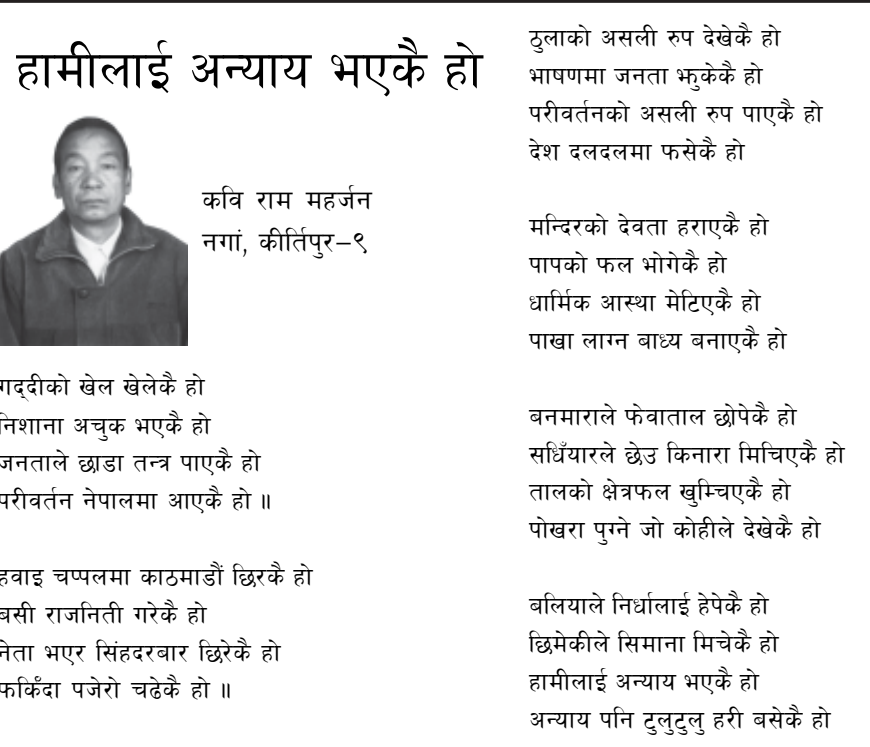 हामीलाई अन्याय भएकै हो
कवि राम महर्जन
नगां, कीर्तिपुर–९
गद्दीको खेल खेलेकै हो
निशाना अचुक भएकै हो
जनताले छाडा तन्त्र पाएकै हो
परीवर्तन नेपालमा आएकै हो ॥
हवाइ चप्पलमा काठमाडौं छिरकै हो
बसी राजनिती गरेकै हो
नेता भएर सिंहदरबार छिरेकै हो
फर्किंदा पजेरो चढेकै हो ॥
ठुलाको असली रुप देखेकै हो
भाषणमा जनता झुकेकै हो
परीवर्तनको असली रुप पाएकै हो
देश दलदलमा फसेकै हो
मन्दिरको देवता हराएकै हो
पापको फल भोगेकै हो
धार्मिक आस्था मेटिएकै हो
पाखा लाग्न बाध्य बनाएकै हो
बनमाराले फेवाताल छोपेकै हो
सधिँयारले छेउ किनारा मिचिएकै हो
तालको क्षेत्रफल खुम्चिएकै हो
पोखरा पुग्ने जो कोहीले देखेकै हो
बलियाले निर्धालाई हेपेकै हो
छिमेकीले सिमाना मिचेकै हो
हामीलाई अन्याय भएकै हो
अन्याय पनि टुलुटुलु हरी बसेकै हो